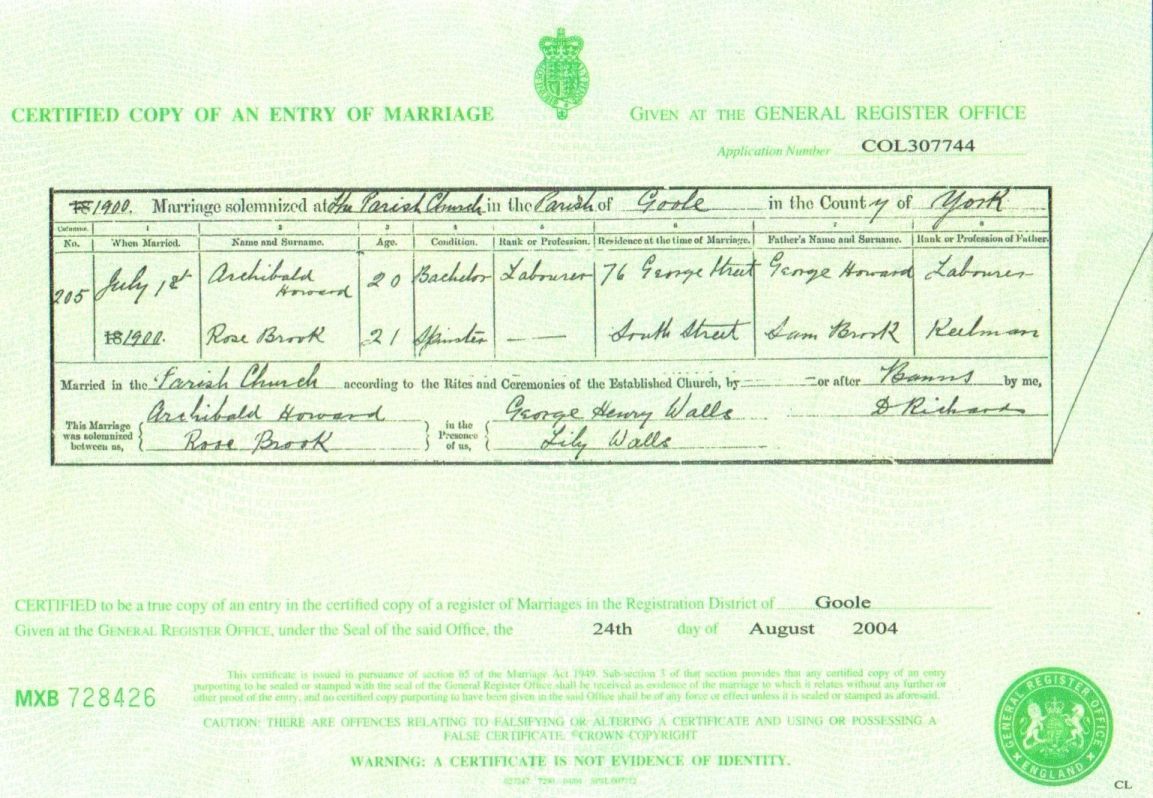 CERTIFIED COPY OF AN ENTRY OF MARRIAGE
GIVEN AT THE GENERAL REGISTER OFFICE
Application Number COL307744
18 1900. Marriage solemnized at the Parish Church in the Parish of Goole in the County of York
Columns. 1 2 3 4 5 6 7 8
No. When Married. Name and Surname. Age. Condition. Rank or Profession. Residence at the time of Marriage. Father's Name and Surname. Rank or Profession of Father.
205 July 1st Archibald Howard 20 Bachelor Labourer 76 George Street George Howard Labourer
18 1900. Rose Brook 21 Spinster — South Street Sam Brook Keelman
Married in the Parish Church according to the Rites and Ceremonies of the Established Church, by — or after Banns by me,
This Marriage was solemnized between us, Archibald Howard Rose Brook in the Presence of us, George Henry Walls Lily Walls D Richards
CERTIFIED to be a true copy of an entry in the certified copy of a register of Marriages in the Registration District of Goole
Given at the GENERAL REGISTER OFFICE, under the Seal of the said Office, the 24th day of August 2004
MXB 728426
This certificate is issued in pursuance of section 65 of the Marriage Act 1949. Sub-section 3 of that section provides that any certified copy of an entry
purporting to be sealed or stamped with the seal of the General Register Office shall be received as evidence of the marriage to which it relates without any further or
other proof of the entry, and no certified copy purporting to have been given in the said Office shall be of any force or effect unless it is sealed or stamped as aforesaid.
CAUTION: THERE ARE OFFENCES RELATING TO FALSIFYING OR ALTERING A CERTIFICATE AND USING OR POSSESSING A
FALSE CERTIFICATE. ©CROWN COPYRIGHT
WARNING: A CERTIFICATE IS NOT EVIDENCE OF IDENTITY.
GENERAL REGISTER OFFICE ENGLAND
CL